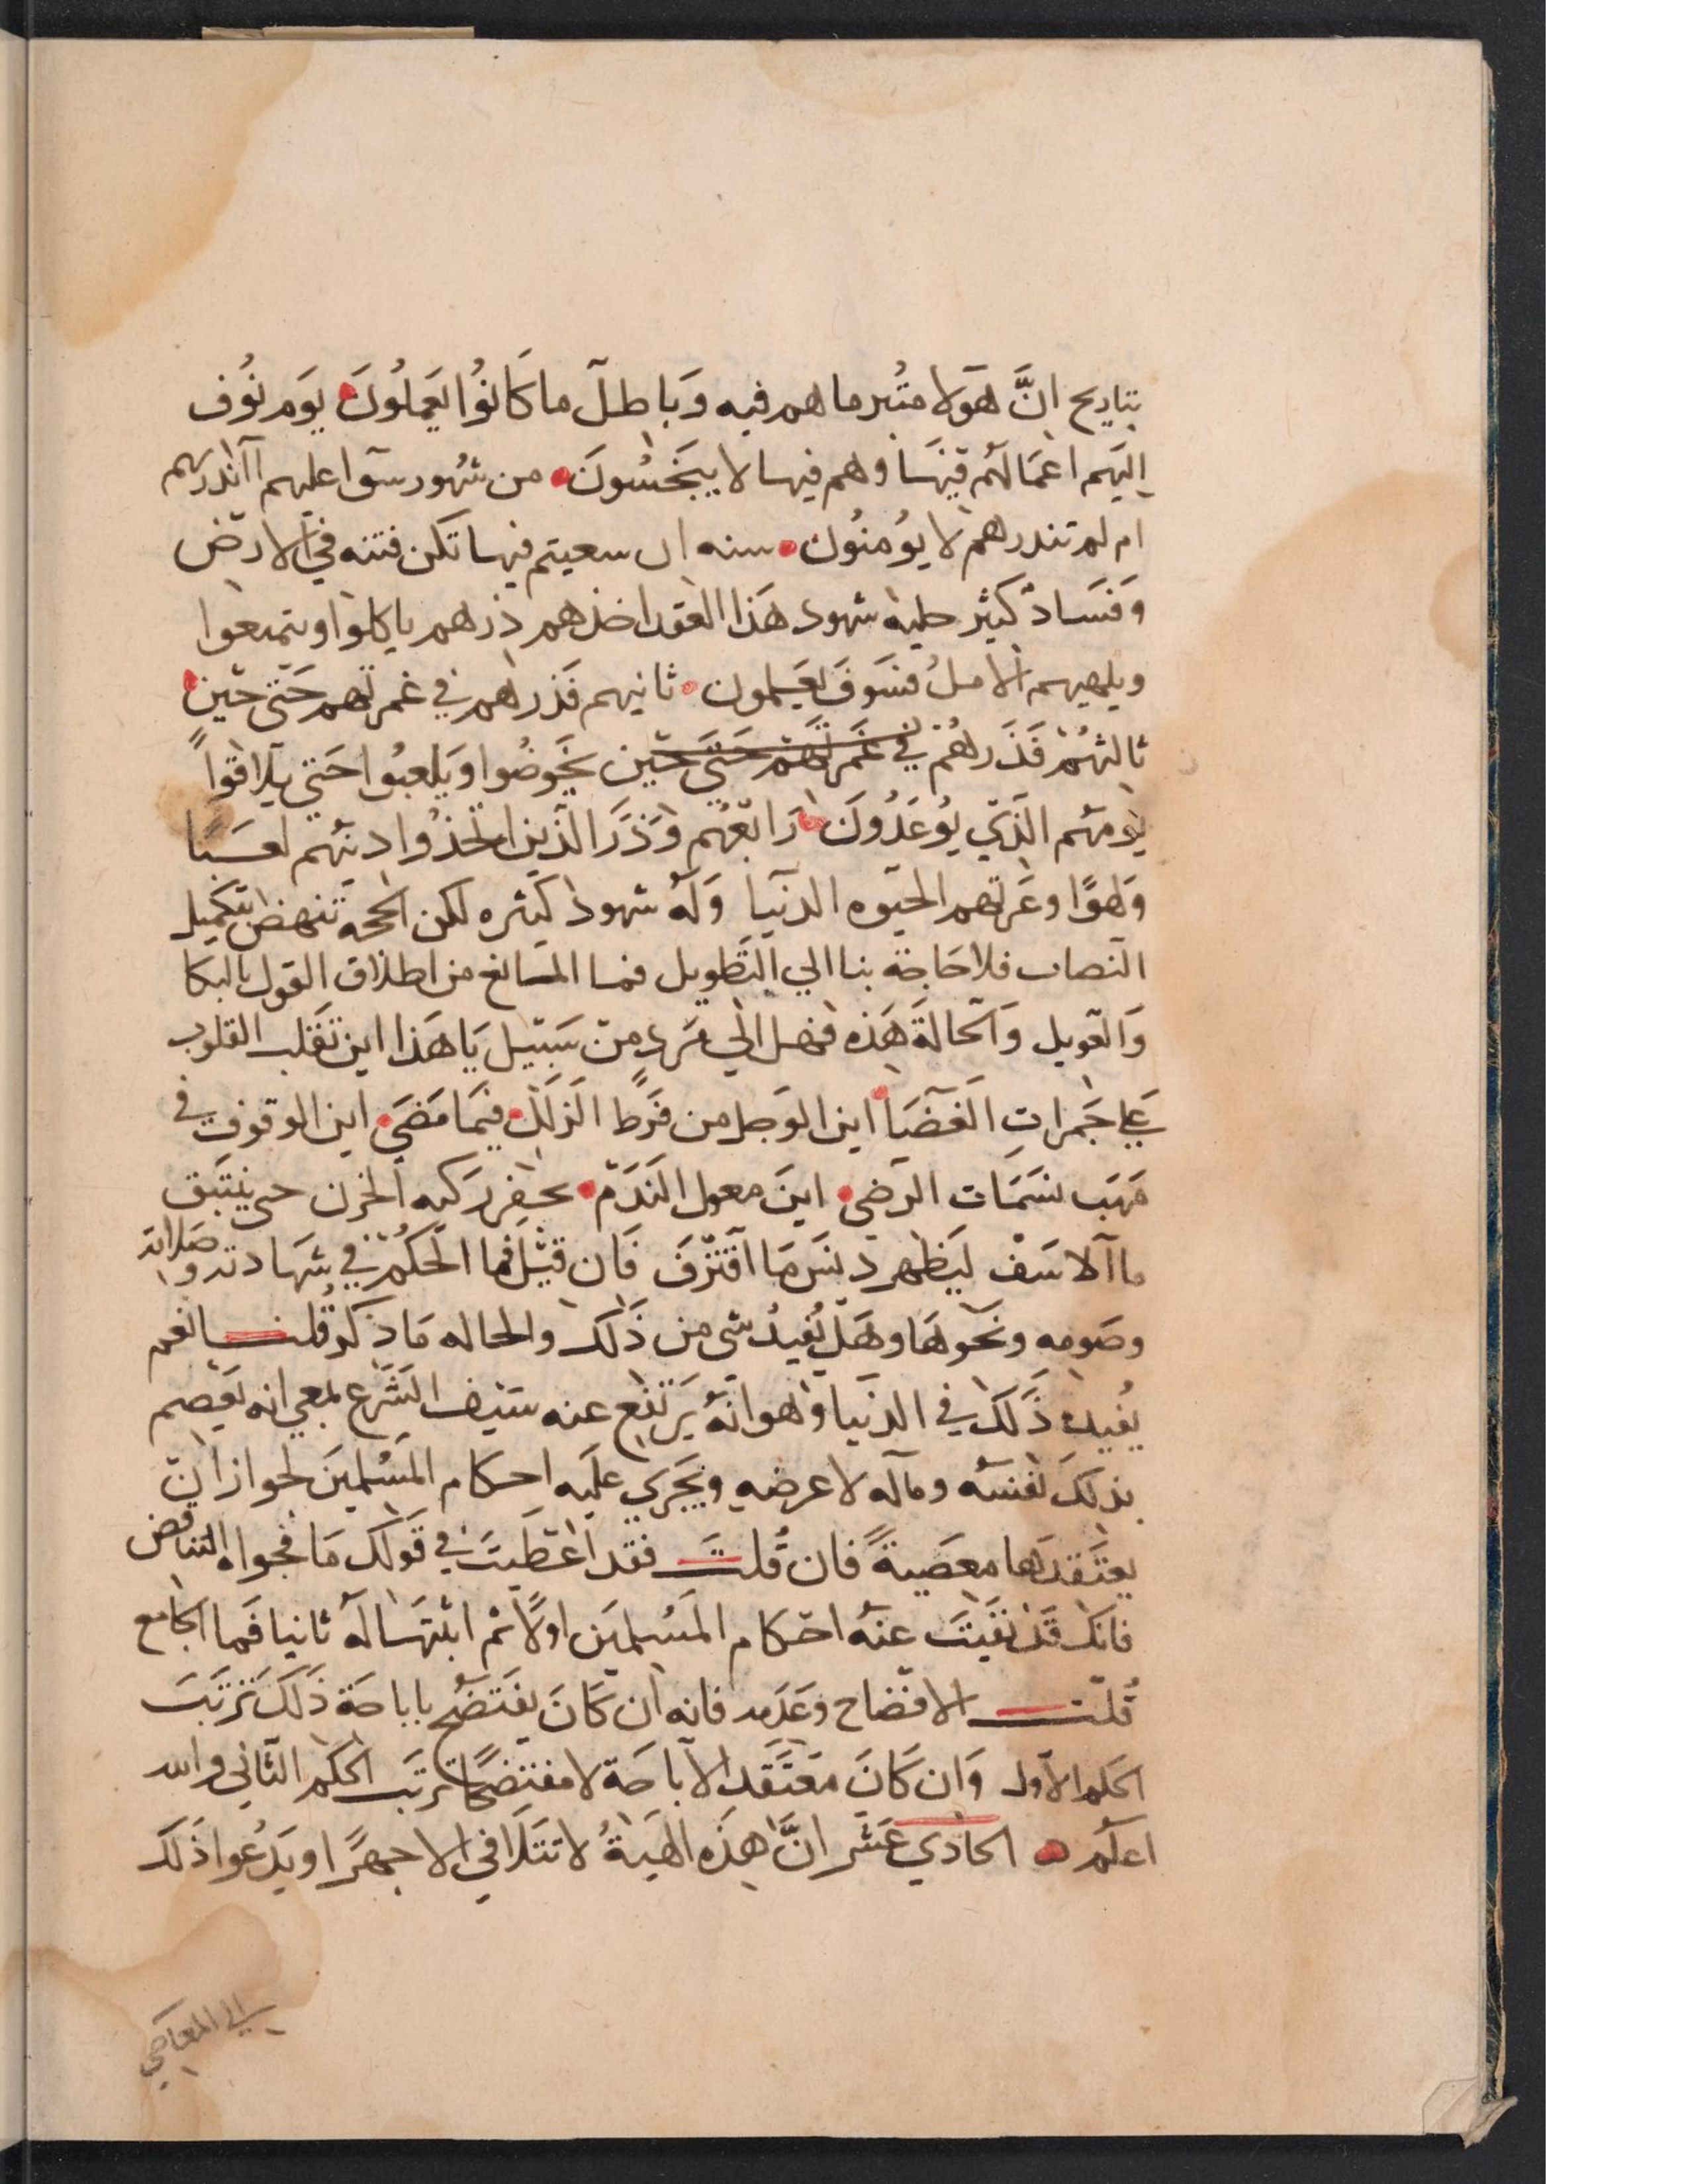 بتاريح انَّ هَوَلا متُبر ما هم فيه وَبا طلَ ما كَانوُا يَعملُونَ يَوم نوُف
اليَهم اعمَالَهُم فيهَا وهم فيها لا يبخَسُونَ من شهُود سَوا عليهم اانذرتهم
ام لم تنذرهم لا يوُمنوُن سنه ان سعيتم فيها تكن فتنه في الارض
وفسَاد كَبير حليه شهود هَذا العقد اخذهم ذرهم ياكلوا ويتمتعوا
ويلهيهم الامل فسَوفَ يَعلمون ثانيهم فَذرهم في غمرتهم حَتى حين
ثالثهُم فَذَرهُم في غَمرتهم حَتى حين يخَوضُوا وَيَلعبُوا حَتي يلاقوا
يَومَهُم الذَي يوُعَدُونَ رَابعُهُم وَذَرَ الذَين اتخذُوا دينَهُم لعبًا
وَلهوًا وغرَتهم الحيَوه الدنَيا وَلَهُ شهود كثيره لكن الحجه تنهض بتكميل
النصاب فلا حَاجة بنا الي التَطويل فما المَانع من اطلاق القول بالبكا
وَالعَويل وَالحَالةَ هَذه فهل الي مَردٍ منَ سَبَيل يَا هَذا اين تقَلب القلوب
عَلي جَمراتِ الغَضَا اين الوَجل من فَرط الزَلَل فيمَا مَضَي اين الوقوف في
مَهَب نسَمَات الرَضي اينَ معول النَدَم يحفر ركيه الحزن حتى ينبَثق
ما الاسَف ليَظهر دنسَ مَا اقتَرفَ فَان قيَل فما الحُكم في شهَادته وصَلاته
وصَومه ونحَوهَا وهَل يُفيدُ شي من ذَلك والحاله مَا ذكر قُلت نعم
يُفيد ذَلَكَ في الدنَيا وَهوانهُ يَرتفع عنه سَيف الشَرع بمعني انه يَعصم
بذلكَ نفسَهُ ومَاله لا عرضه ويَجَري علَيه احكام المسُلمينَ لجواز ان
يعتَقدَها معصَيةً فان قُلتَ فقد اعَطَيتَ في قَولكَ مَا فحواه التناقض
فانكَ قَد نفَيتَ عنَهُ احَكام المسُلمَين اولًا ثم اثبتَها لَهُ ثانيا فَما الجَامع
قُلتَ الافتضاح وَعَدَمه فانه ان كَانَ يفَتَضحُ باباحَة ذَلكَ تَرتبَ
الحَكم الاول وَان كَانَ مَعتَقد الاباحَة لا مفتضحًا ترتبَ الحكم الثاني والله
اعلَم الحَادي عَشر انَّ هذَه الهَيةُ لا تتَلافي الا جهرًا او يَدعُوا ذَلكَ
الي المعَاصي